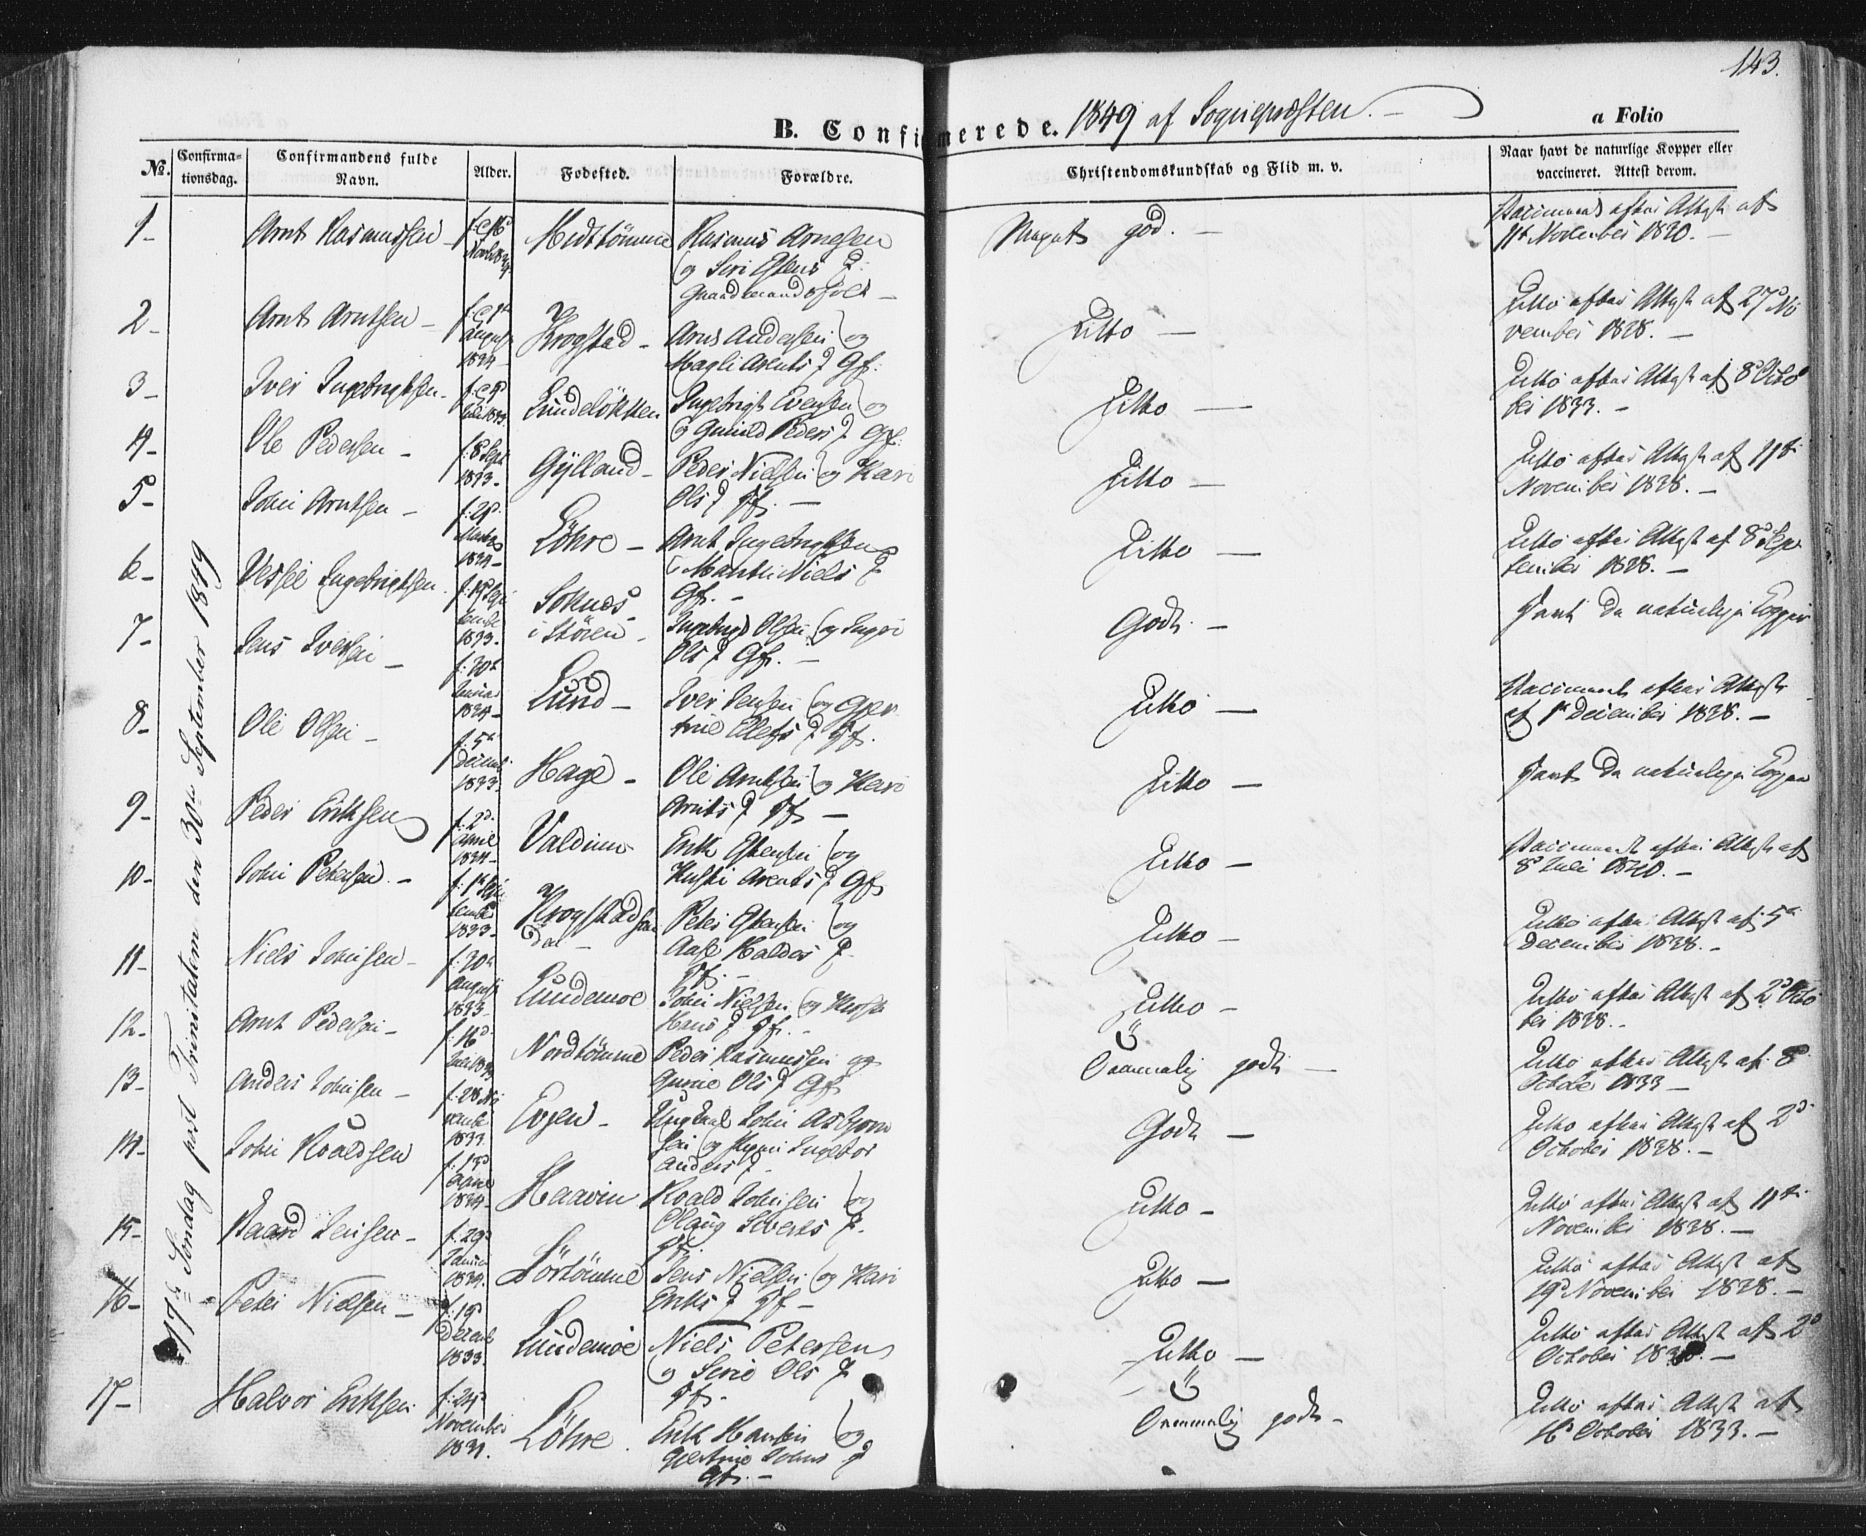 143.
B. Confirmerede. 1849 af Sognepræsten. —
a Folio
No.
Confirma-
tionsdag.
Confirmandens fulde
Navn.
Alder.
Fødested.
Forældre.
Christendomskundskab og Flid m. v.
Naar havt de naturlige Kopper eller
vaccineret. Attest derom.
17de Søndag post Trinitatem den 30te September 1849
1- Arnt Rasmussen
Midttömme
Rasmus Arnesen
og Siri Estens D.
Gaardmandsfolk —
Meget god. —
Vaccineret efter Attest af
11te November 1830. —
2- Arnt Arntsen —
august
1834
Krogstad —
Arnt Andersen og
Magli Arents D Gf.
Ditto —
Ditto efter Attest af 27d No
vember 1838. —
3- Iver Ingebrigtsen
Lundeløkken
Ingebrigt Evensen og
Gunild Peders D Gf.
Ditto —
Ditto efter Attest af 8d Octo
ber 1833. —
4- Ole Pedersen —
f. 8 Sept
1833-
Gylland —
Peder Nielsen og Kari
Ols D Gf. —
Ditto —
Ditto efter Attest af 11te
November 1838. —
5- John Arntsen —
1834-
Löhre —
Arnt Ingebrigtsen
Marthe Niels D
Gf. —
Ditto —
Ditto efter Attest af 8d Sep
tember 1838. —
6- Ingebrigtsen
tember
1833-
Soknes
i Støren —
Ingebrigt Olsen og Ingri
Ols D Gf. —
Godt. —
havt de naturlige Kopper
7- Jens Iversen —
f. 30te
Januar
1834-
Lund —
Iver Jensen og Gjer
true Ellefs D Gf.
Ditto —
Vaccineret efter Attest
af 1ste December 1838. —
8- Ole Olsen —
f. 5te
Decemb
1833
Hage —
Ole Arntsen og Kari
Arnts D Gf —
Ditto —
havt de naturlige Kopper
9- Peder Eriksen
f. 2d
April
1834-
Valdum
Erik Estensen og
Arents D Gf
Ditto —
Vaccineret efter Attest af
8d Juli 1840. —
10- John Petersen. —
f. 1ste Sep
tember
1833-
Peter Estensen og
Ane Haldos D.
Gf. —
Ditto —
Ditto efter Attest af 5te
December 1838. —
11- Niels Johnsen —
f. 30te
August
1833-
Lundemoe
John Nielsen og
Hans D Gf. —
Ditto —
Ditto efter Attest af 2d Octo
ber 1838. —
12- Arnt Pedersen —
Nordtömme
Peder Rasmussen og
Ols D Gf
Temmelig godt —
Ditto efter Attest af 8
October 1833 —
13- Anders Johnsen —
f. 28 No
vember
1833.
Evjen —
Ungkarl John Asbjørn
sen og Pigen Ingebor
Anders D.
Godt —
Ditto efter Attest af 2d
October 1838. —
14- John Roaldsen
April
1834-
Haavin
Roald Johnsen og
Olaug Siverts D.
Gf.
Ditto —
Ditto efter Attest af 11te
November 1838. —
15- Baard Jensen —
f. 29d
Januar
1834.
Sörtömme
Jens Nielsen og Kari
Eriks D Gf —
Ditto —
Ditto efter Attest af
19d November 1838. —
16- Peter Nielsen —
Decemb
1833
Lundemoe
Niels Petersen
og Ols D
Gf. —
Ditto —
Ditto efter Attest af 2d
October 1838. —
17- Halvor Eriksen
f. 24d
November
Löhre.
Erik Hansen og
Johns D
Gf. —
Temmelig godt —
Ditto efter Attest af
16d October 1833. —